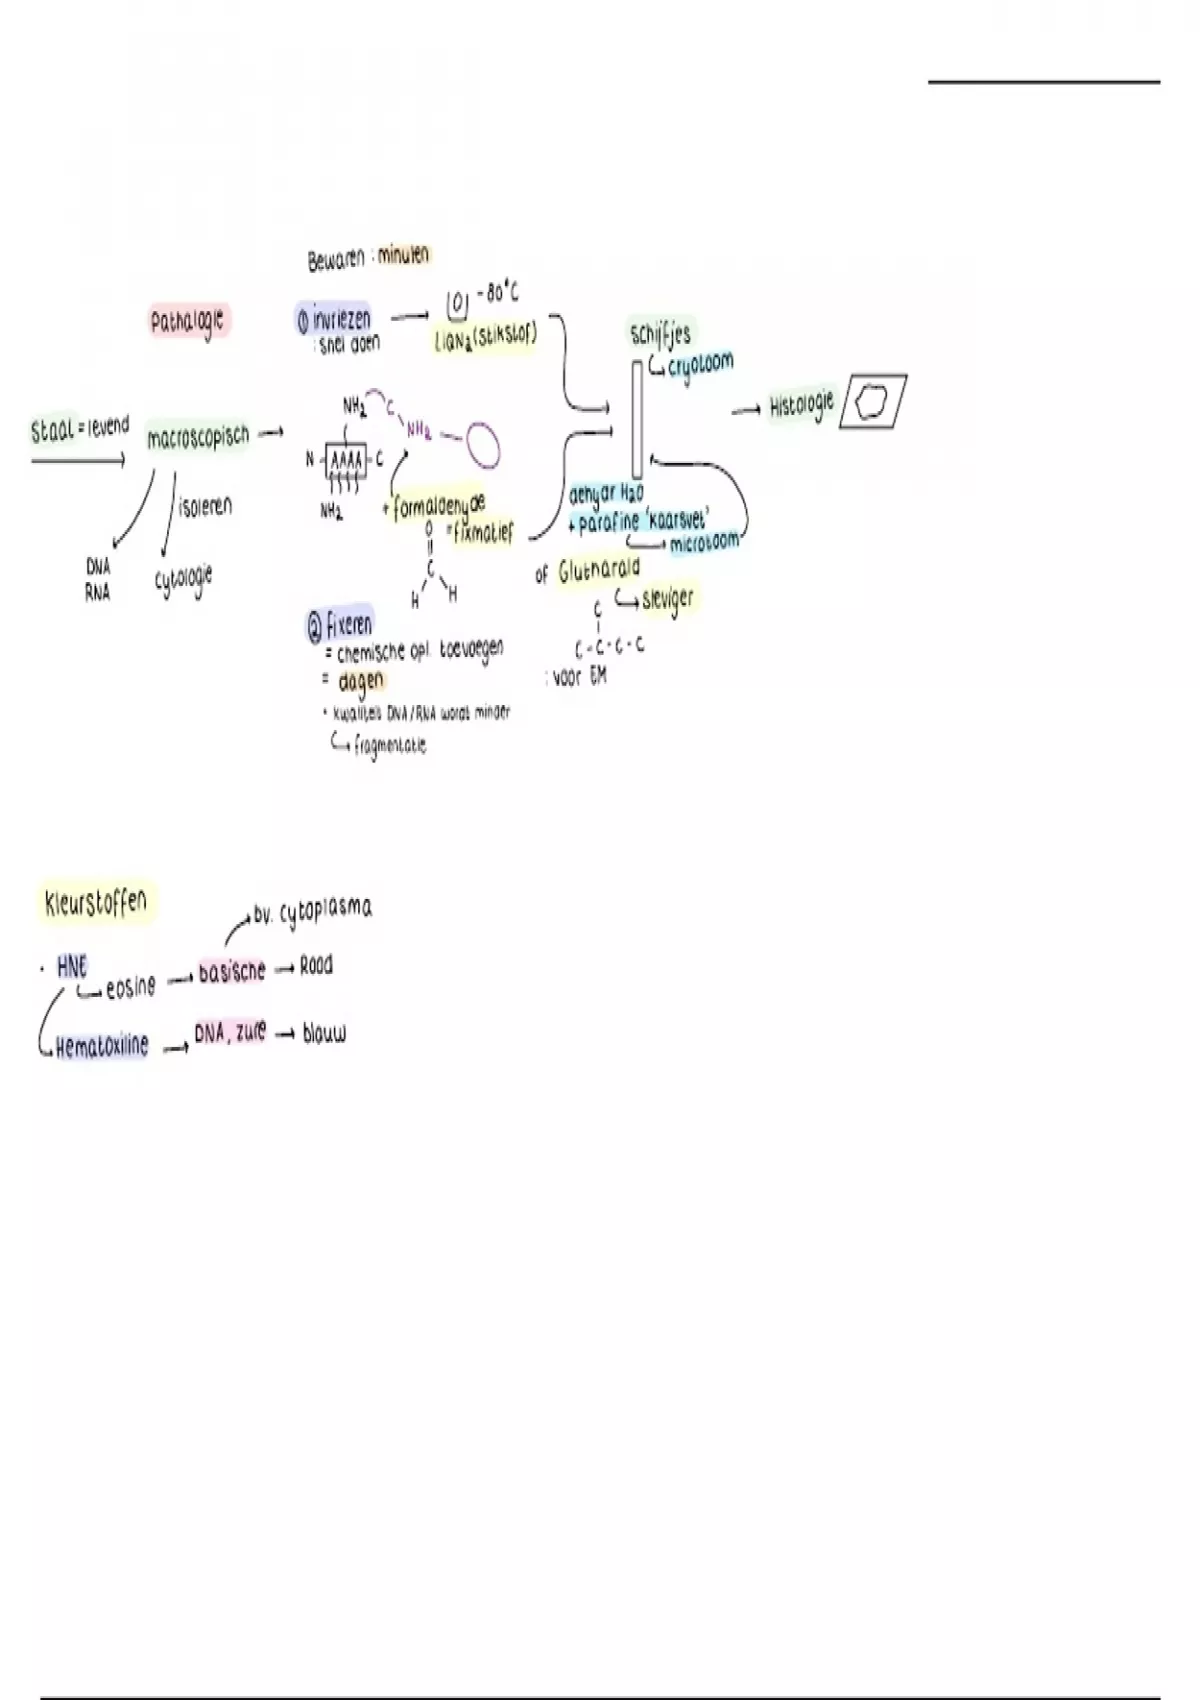 Bewaren : minuten
Pathalogie
① invriezen
: snel doen
-80°C
LiqN₂ (stikstof)
Schijfjes
cryotoom
Histologie
Staal = levend
macroscopisch
isoleren
DNA
RNA
cytologie
NH₂ C
NH₂
N - AAAA - C
NH₂
+ formaldehyde
= fixmatief
O
C
H H
dehydr H₂O
+ parafine 'kaarsvet'
microtoom
of Glutharald
steviger
C
C - C - C - C
: voor EM
② Fixeren
= chemische opl. toevoegen
= dagen
• kwaliteit DNA/RNA wordt minder
fragmentatie
Kleurstoffen
bv. cytoplasma
• HNE
eosine → basische → Rood
Hematoxiline → DNA, zure → blauw